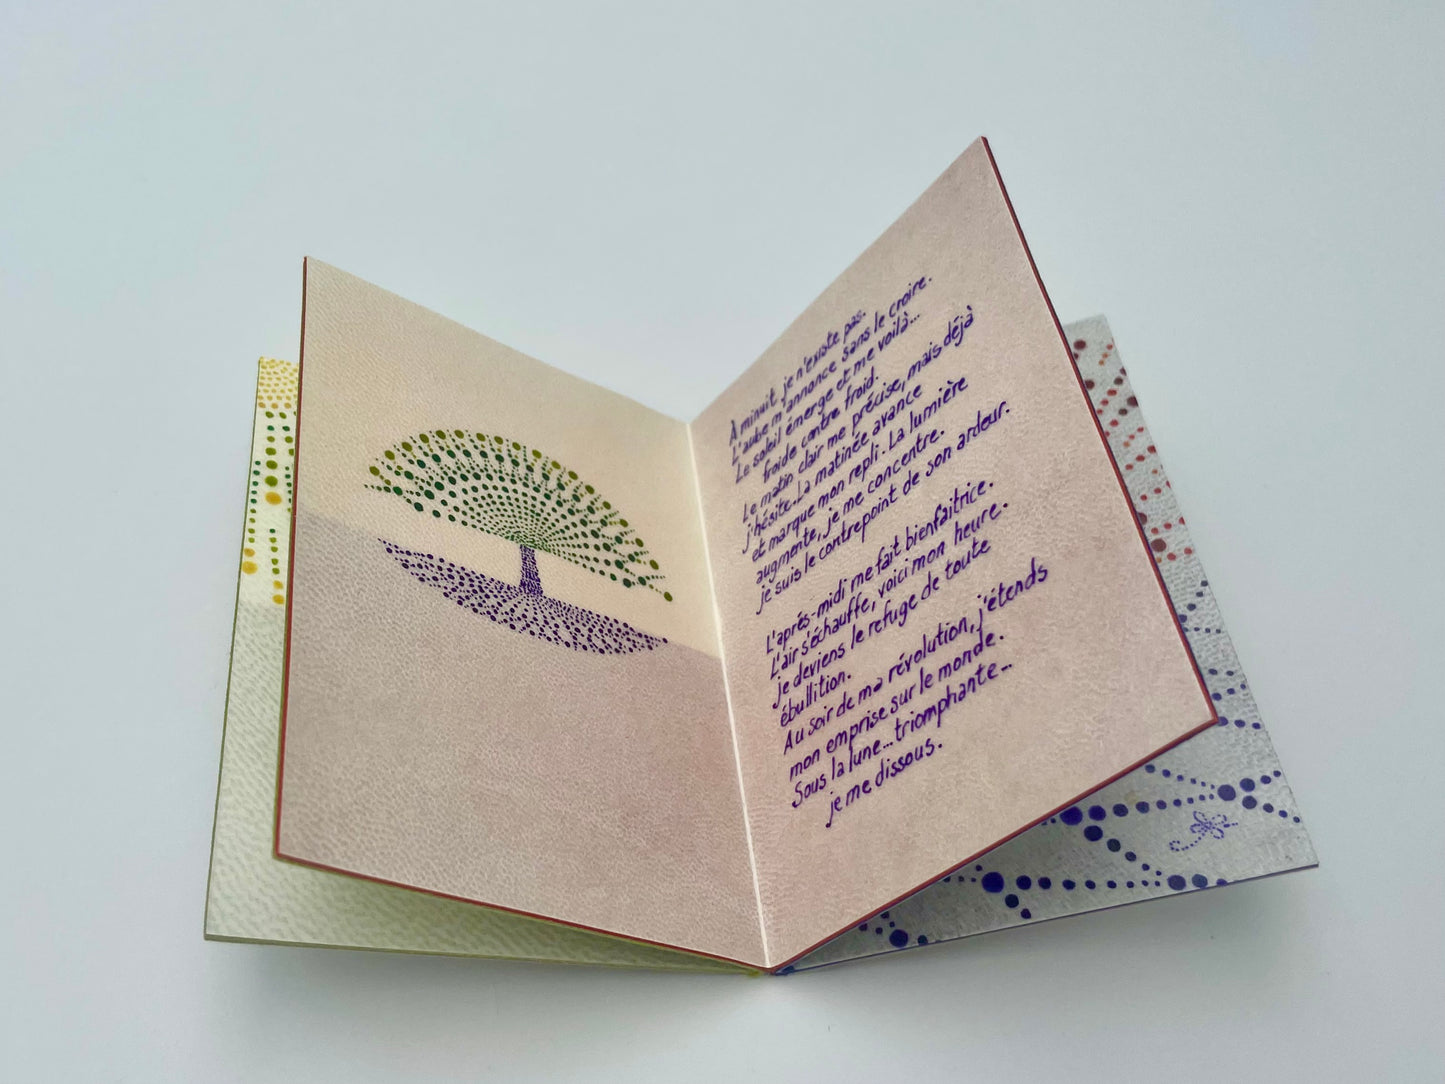 À minuit je n'existe pas.
L'aube m'annonce sans le croire.
Le soleil émerge et me voilà...
froide contre froid.
Le matin clair me précise, mais déjà
j'hésite. La matinée avance
et marque mon repli. La lumière
augmente, je me concentre.
je suis le contrepoint de son ardeur.
L'après-midi me fait bienfaitrice.
L'air s'échauffe, voici mon heure.
je deviens le refuge de toute
ébullition.
Au soir de ma révolution, j'étends
mon emprise sur le monde.
Sous la lune... triomphante...
je me dissous.